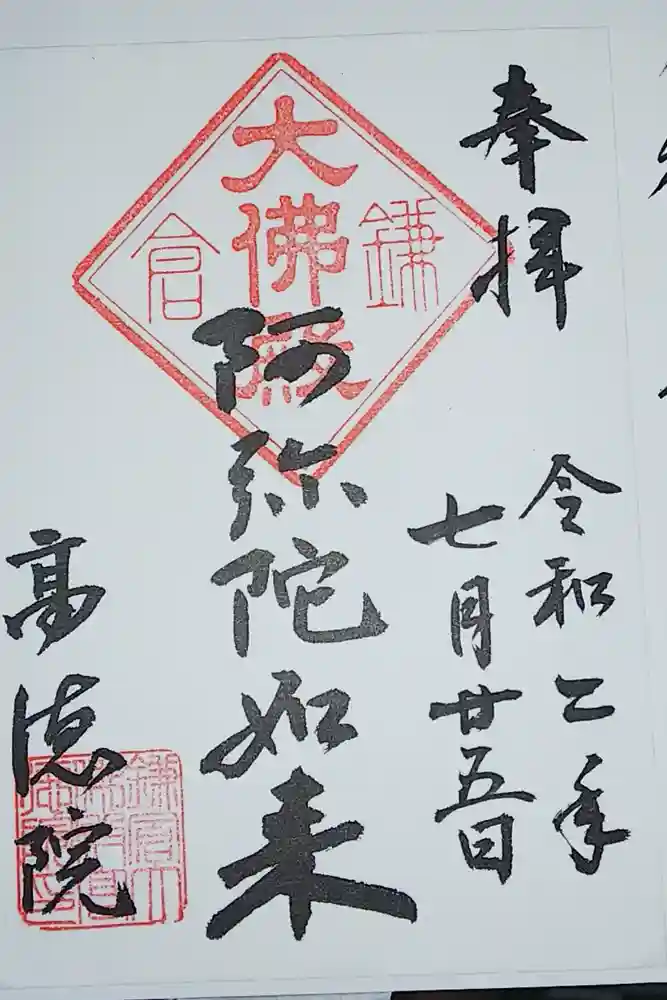 奉拝
令和二年
七月廿五日
鎌倉
大佛殿
阿弥陀如来
高徳院